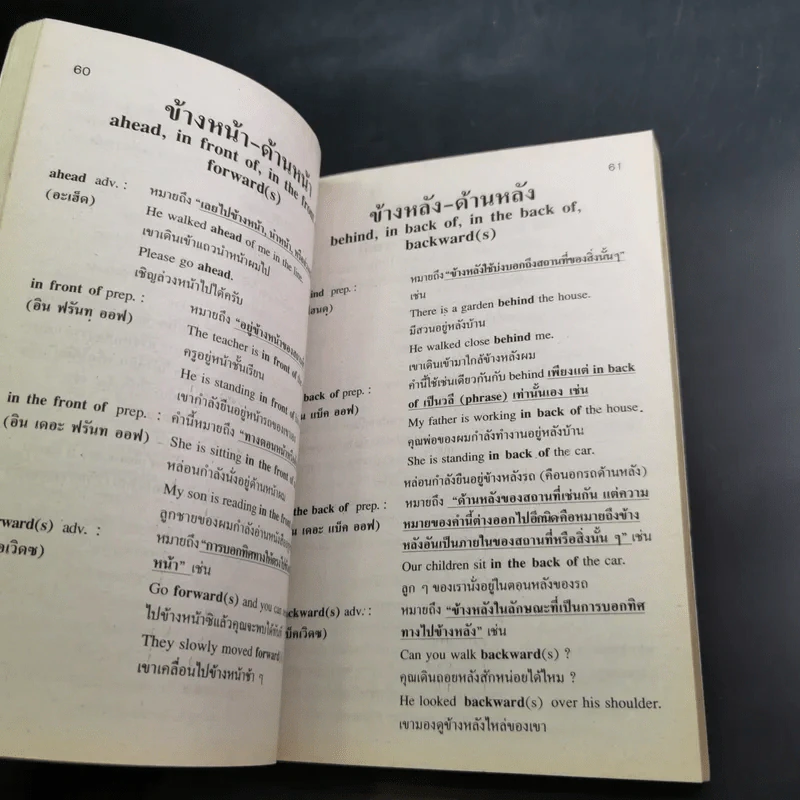 60
ข้างหน้า-ด้านหน้า
ahead, in front of, in the front
forward(s)
ahead adv. : หมายถึง “เลยไปข้างหน้า, นำหน้า,
(อะเฮ็ด)
He walked ahead of me in the line.
เขาเดินเข้าแถวนำหน้าผมไป
Please go ahead.
เชิญล่วงหน้าไปได้ครับ
in front of prep. : หมายถึง “อยู่ข้างหน้าของ
(อิน ฟรันทฺ ออฟ)
The teacher is in front of
ครูอยู่หน้าชั้นเรียน
He is standing in front of
เขากำลังยืนอยู่หน้ารถของ
in the front of prep. : คำนี้หมายถึง “ทางตอนหน้า
(อิน เดอะ ฟรันท ออฟ)
She is sitting in the front of
หล่อนกำลังนั่งอยู่ด้านหน้า
My son is reading in the front
ลูกชายของผมกำลังอ่านหนังสือ
ward(s) adv. : หมายถึง “การบอกทิศทางให้
หน้า” เช่น
Go forward(s) and you can
ไปข้างหน้าซิแล้วคุณจะพบ
They slowly moved forward
เขาเคลื่อนไปข้างหน้าช้า ๆ
61
ข้างหลัง-ด้านหลัง
behind, in back of, in the back of,
backward(s)
ind prep. : หมายถึง “ข้างหลังใช้บ่งบอกถึงสถานที่ของสิ่งนั้น ๆ”
เช่น
There is a garden behind the house.
มีสวนอยู่หลังบ้าน
He walked close behind me.
เขาเดินเข้ามาใกล้ข้างหลังผม
back of prep. : คำนี้ใช้เช่นเดียวกันกับ behind เพียงแต่ in back
น แบ็ค ออฟ) of เป็นวลี (phrase) เท่านั้นเอง เช่น
My father is working in back of the house.
คุณพ่อของผมกำลังทำงานอยู่หลังบ้าน
She is standing in back of the car.
หล่อนกำลังยืนอยู่ข้างหลังรถ (คือนอกรถด้านหลัง)
the back of prep. : หมายถึง “ด้านหลังของสถานที่เช่นกัน แต่ความ
น เดอะ แบ็ค ออฟ) หมายของคำนี้ต่างออกไปอีกนิดคือหมายถึงข้าง
หลังอันเป็นภายในของสถานที่หรือสิ่งนั้น ๆ” เช่น
Our children sit in the back of the car.
ลูก ๆ ของเรานั่งอยู่ในตอนหลังของรถ
ackward(s) adv. : หมายถึง “ข้างหลังในลักษณะที่เป็นการบอกทิศ
บ็คเวิดซ) ทางไปข้างหลัง” เช่น
Can you walk backward(s) ?
คุณเดินถอยหลังสักหน่อยได้ไหม ?
He looked backward(s) over his shoulder.
เขามองดูข้างหลังไหล่ของเขา